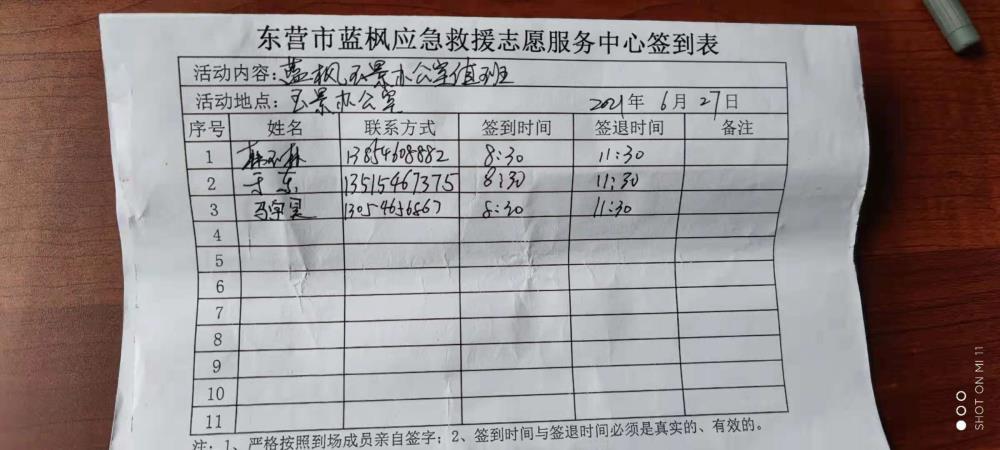 东营市蓝枫应急救援志愿服务中心签到表
活动内容:蓝枫玉景办公室值班
活动地点:玉景办公室 2021年 6月 27日
序号 姓名 联系方式 签到时间 签退时间 备注
1 13854608882 8:30 11:30
2 于东 13515467375 8:30 11:30
3 13054656867 8:30 11:30
4
5
6
7
8
9
10
11
注: 1、严格按照到场成员亲自签字; 2、签到时间与签退时间必须是真实的、有效的。
SHOT ON MI 11